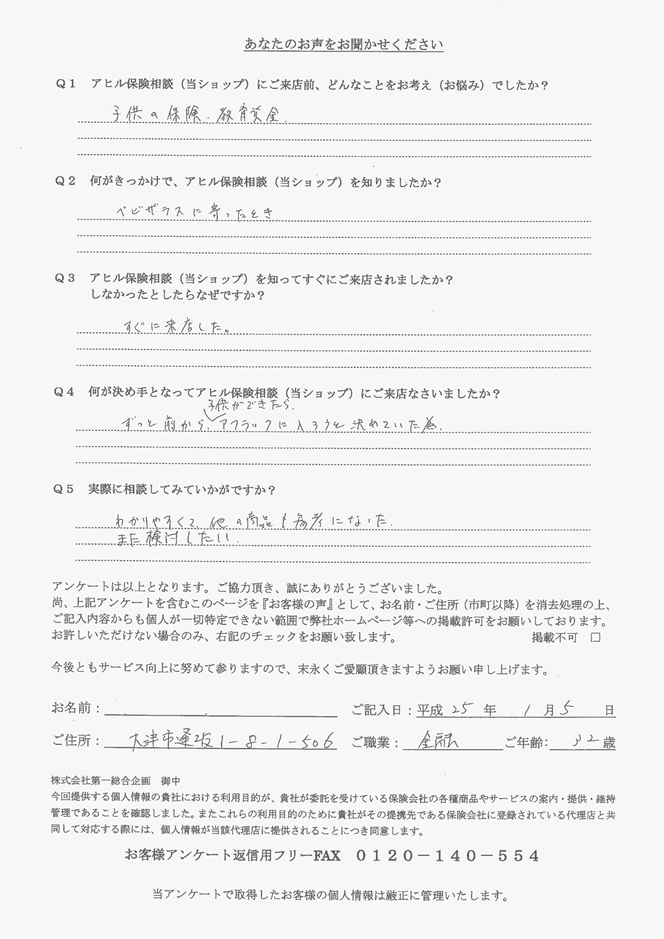 あなたのお声をお聞かせください
Q1 アヒル保険相談(当ショップ)にご来店前、どんなことをお考え(お悩み)でしたか?
子供の保険、教育資金
Q2 何がきっかけで、アヒル保険相談(当ショップ)を知りましたか?
ベビザラスに寄ったとき
Q3 アヒル保険相談(当ショップ)を知ってすぐにご来店されましたか?
しなかったとしたらなぜですか?
すぐに来店した。
Q4 何が決め手となってアヒル保険相談(当ショップ)にご来店なさいましたか?
子供ができたら、
ずっと前から、アフラックに入ろうと決めていた為、
Q5 実際に相談してみていかがですか?
わかりやすくて、他の商品も参考になった。
また検討したい。
アンケートは以上となります。ご協力頂き、誠にありがとうございました。
尚、上記アンケートを含むこのページを『お客様の声』として、お名前・ご住所(市町以降)を消去処理の上、
ご記入内容からも個人が一切特定できない範囲で弊社ホームページ等への掲載許可をお願いしております。
お許しいただけない場合のみ、右記のチェックをお願い致します。 掲載不可 □
今後ともサービス向上に努めて参りますので、末永くご愛顧頂きますようお願い申し上げます。
お名前: ご記入日:平成 25 年 1 月 5 日
ご住所: 大津市 1-8-1-506 ご職業: 金融 ご年齢: 32 歳
株式会社第一総合企画 御中
今回提供する個人情報の貴社における利用目的が、貴社が委託を受けている保険会社の各種商品やサービスの案内・提供・維持
管理であることを確認しました。またこれらの利用目的のために貴社がその提携先である保険会社に登録されている代理店と共
同して対応する際には、個人情報が当該代理店に提供されることにつき同意します。
お客様アンケート返信用フリーFAX 0120-140-554
当アンケートで取得したお客様の個人情報は厳正に管理いたします。